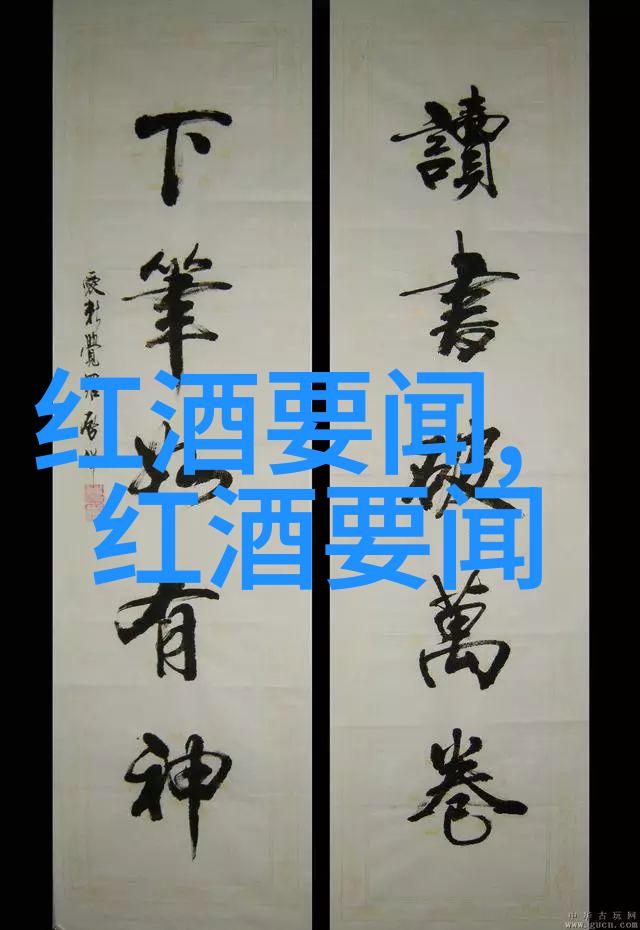 讀書破萬卷
下筆如有神
愛新覺羅
红酒要闻,
红酒要闻
中华古玩网
www.gucn.com